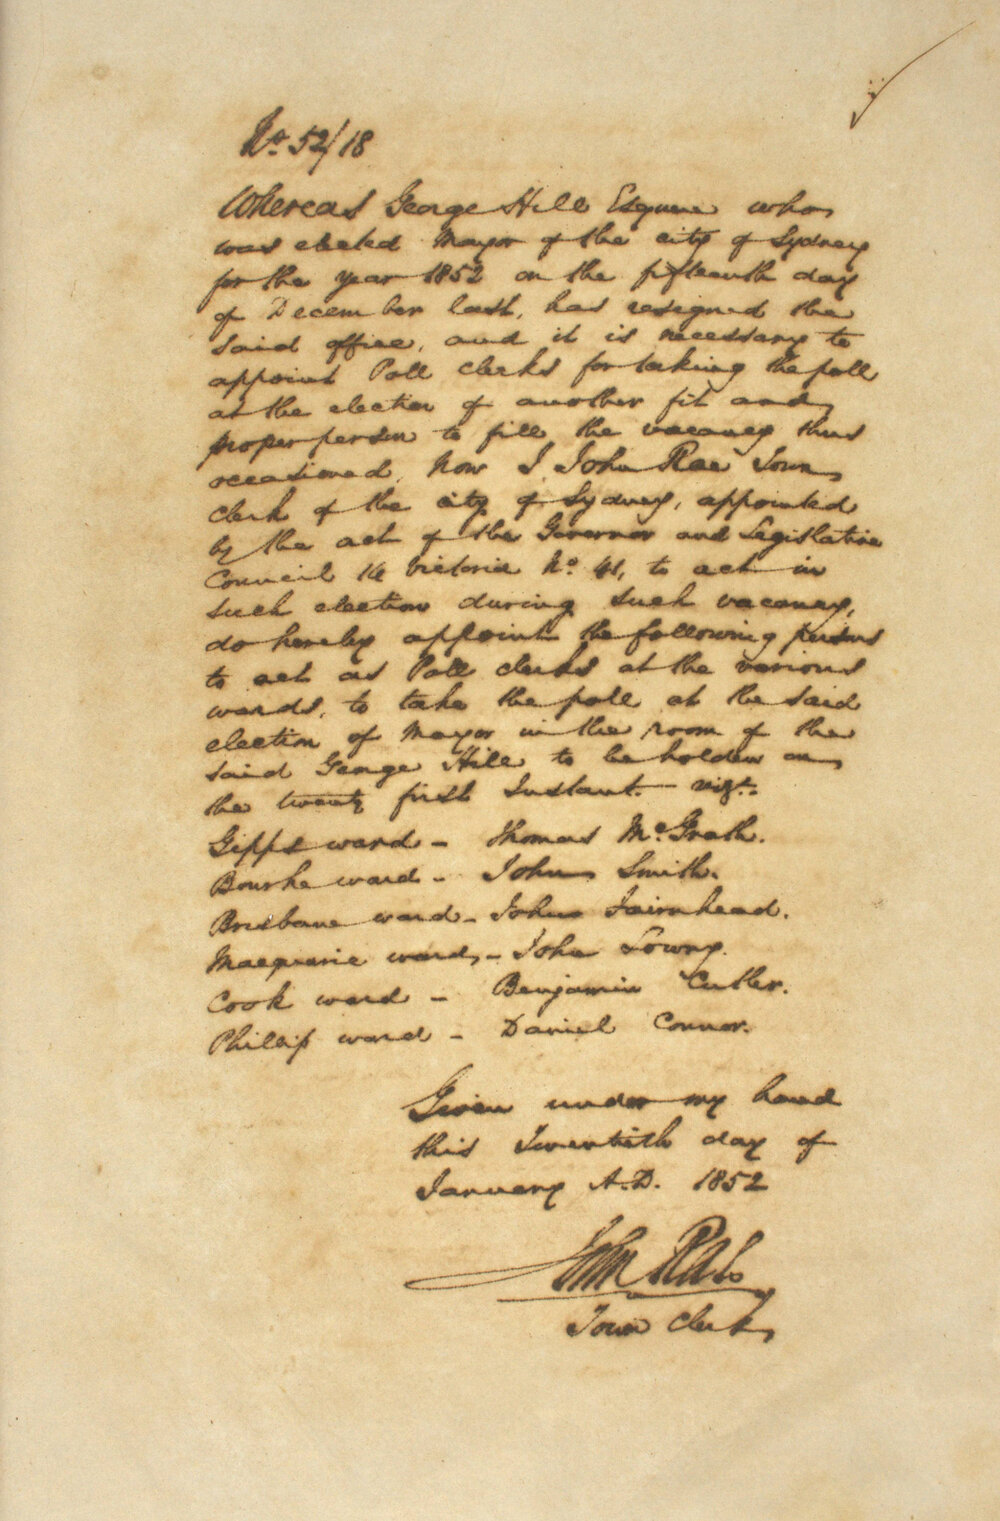 No. 52/18
Whereas George Hill Esquire who
was elected Mayor of the city of Sydney
for the year 1852 on the fifteenth day
of December last, has resigned the
said office, and it is necessary to
appoint Poll clerks for taking the poll
at the election of another fit and
proper person to fill the vacancy thus
occasioned, Now I John Rae Town
clerk of the city of Sydney, appointed
by the act of the Governor and Legislative
Council 14 Victoria No. 41, to act in
such election during such vacancy,
do hereby appoint the following persons
to act as Poll clerks at the various
wards, to take the poll at the said
election of Mayor in the room of the
said George Hill to be holden on
the twenty first Instant - vizt.
Gipps ward - Thomas McGrath.
Bourke ward - John Smith.
Brisbane ward - John Fairhead.
Macquarie ward, - John Lowry.
Cook ward - Benjamin Cutler.
Phillip ward - Daniel Connor.
Given under my hand
this Twentieth day of
January A.D. 1852
John Rae
Town Clerk